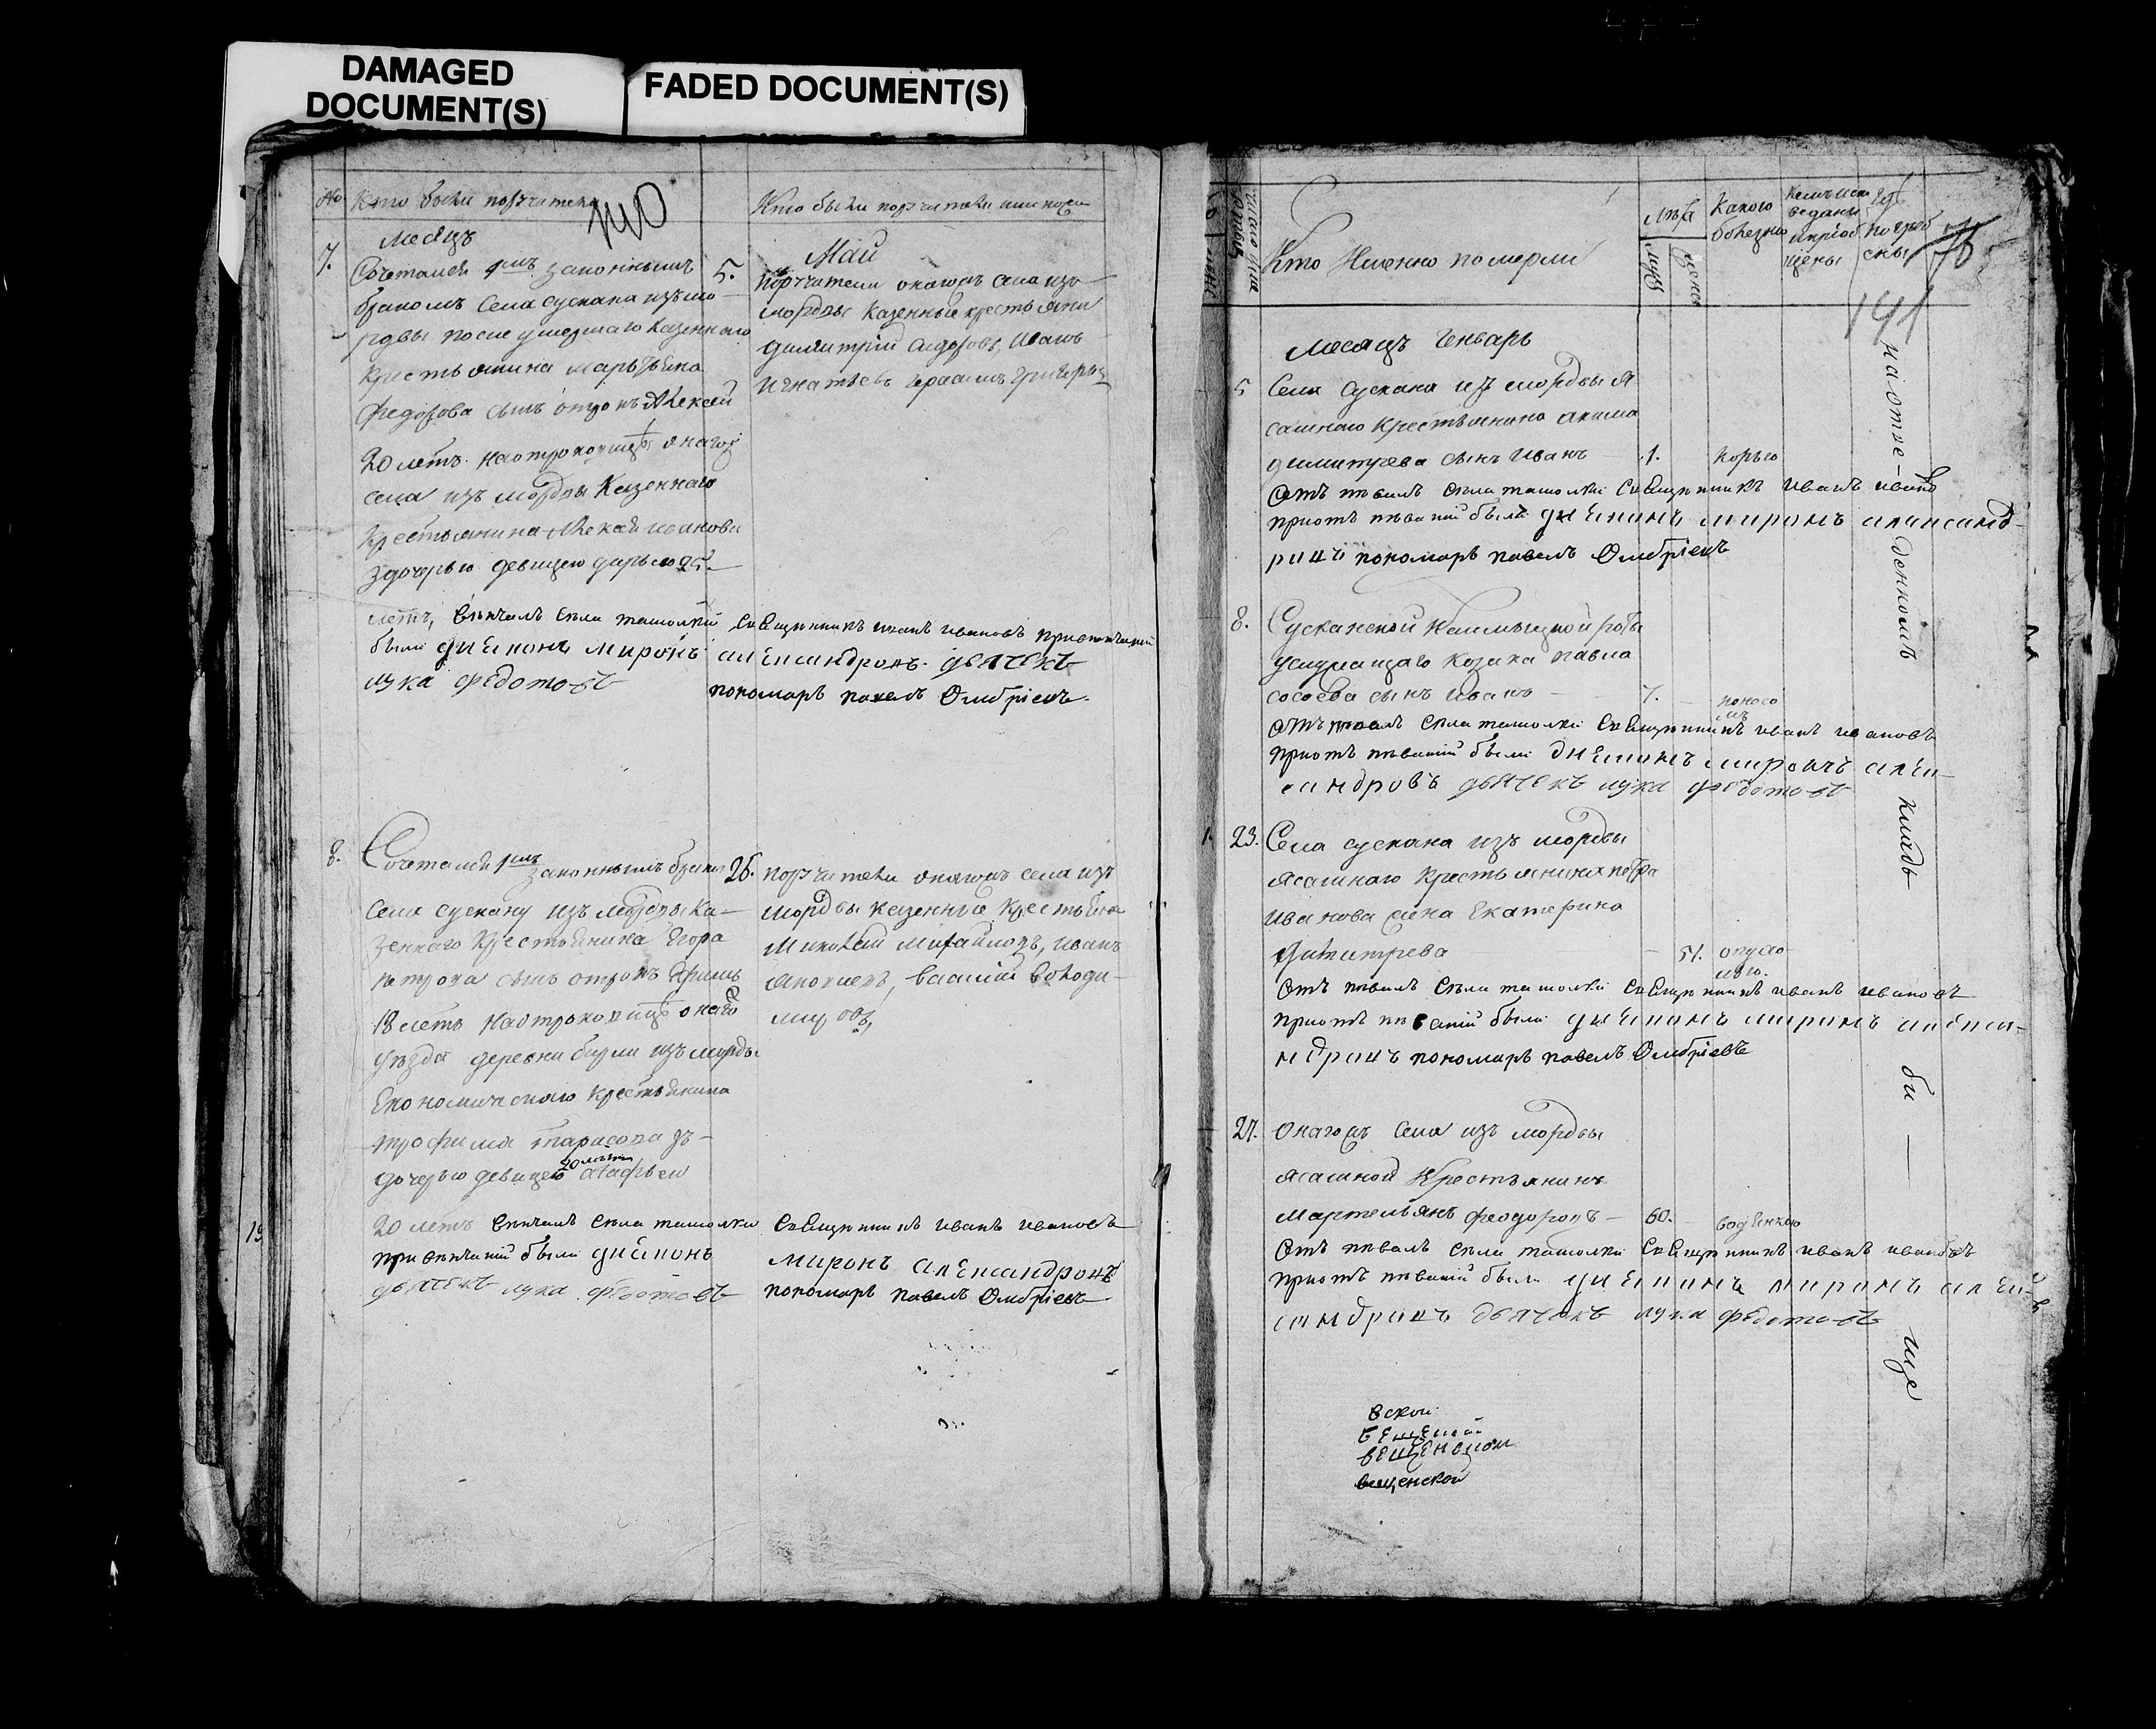 DAMAGED
DOCUMENT(S)
FADED DOCUMENT(S)
№ Кто были поручители
Кто были поручители или поезж
месяцъ
Маи
7. Сочетался 1мъ законнымъ
бракомъ Села сускана изъ мо-
рдвы после умершаго казеннаго
крестьянина мартьяна
федорова сынъ отрокъ Алексей
20 летъ. на отроковице онагожъ
села изъ мордвы казеннаго
крестьянина Алексея иванова
здочерью девицею дарьею 25.
летъ, венчалъ села ташолки священникъ иванъ ивановъ при венчаніи
были дияконъ миронъ александровъ. дьячекъ
лука федотовъ
пономарь павелъ Дмитріевъ.
5. поручители онагожъ села изъ
мордвы казенные крестьяна
димитрій сидоровъ, Иванъ
игнатьевъ герасимъ григорьевъ
8. Сочетался 1мъ законнымъ бракомъ
села сускану изъ мордвы ка-
зеннаго крестьянина Егора
петрова сынъ отрокъ Ефимъ
18 летъ на отроковице онаго
уезда деревни бирли изъ мордвы
Економическаго крестьянина
трофима тарасова зъ-
дочерью девицею 20 летъ агафьею
20 летъ венчалъ села ташолки священникъ иванъ ивановъ
при венчаніи были дияконъ миронъ александровъ
дьячекъ лука федотовъ пономарь павелъ Дмитріевъ
26. поручители онагожъ села изъ
мордвы казенные крестьяна
Миколай Михайловъ, иванъ
василій володи-
мировъ,
Кто Именно померли
лета
муж
женс
Какою
болезнію
Кемъ испо
ведены
и приоб
щены
где
погреб
ены
75
141
месяцъ Генварь
5 Села сускана изъ мордвы я
сашнаго крестьянина акима
димитрева сынъ иванъ 1. корью
отъ певалъ села ташолки священникъ иванъ иванов
при отъ певаніи были дияконъ миронъ александ-
ровъ пономарь павелъ Дмитріевъ
8. Сусканской калмыцкой роты
умершаго козака павла
сосоева сынъ иванъ 7. поносо
мъ
отъ певалъ села ташолки священникъ иванъ ивановъ
при отъ певаніи были дияконъ миронъ алек-
сандровъ дьячекъ лука федотовъ
1. 23. Села сускана изъ мордвы
ясашнаго крестьянина петра
иванова жена Екатерина
димитрева 51. опухо
лью.
отъ певалъ села ташолки священникъ иванъ ивановъ
при отъ певаніи были дияконъ миронъ алекса-
ндровъ пономарь павелъ Дмитріевъ
27. онагожъ села изъ мордвы
ясашной крестьянинъ
Мартемьянъ феодоровъ 60. водянкою
отъ певалъ села ташолки священникъ иванъ ивановъ
при отъ певаніи были дияконъ миронъ алек-
сандровъ дьячекъ лука федотовъ
на отве-
денномъ
кладь
би
ще
вской
вещенской
вещенской